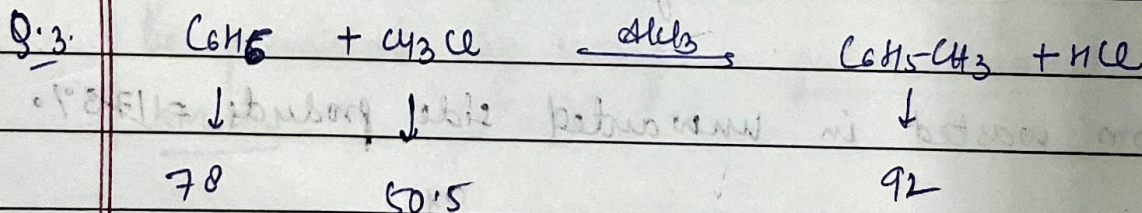 Q.3. C6H6 + CH3Cl AlCl3 C6H5-CH3 + HCl
↓ ↓ ↓
78 50.5 92